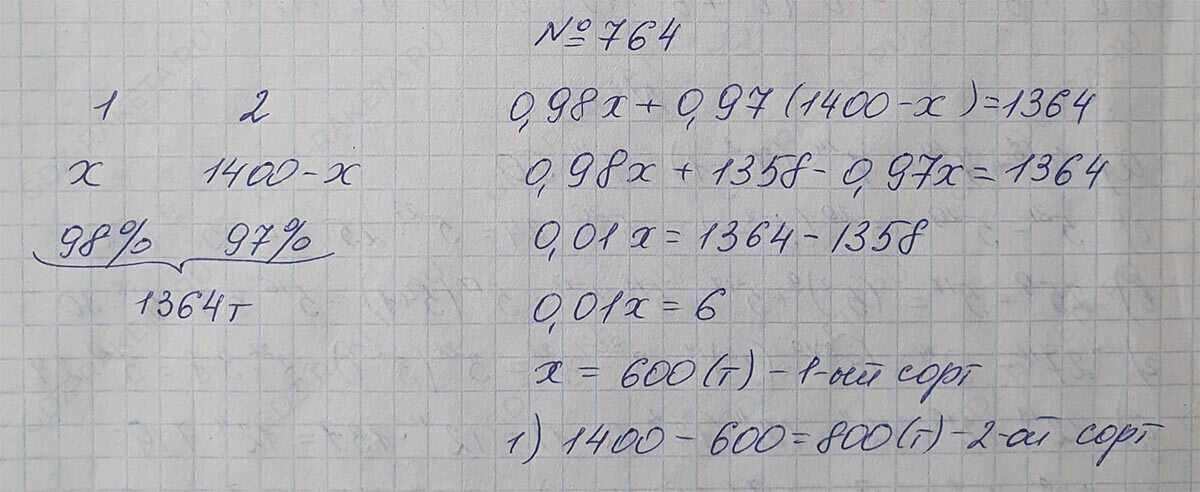 № 764
1 2
x 1400-x
98% 97%
1364т
0,98x + 0,97 (1400-x) = 1364
0,98x + 1358 - 0,97x = 1364
0,01x = 1364 - 1358
0,01x = 6
x = 600 (т) - 1-ый сорт
1) 1400 - 600 = 800 (т) - 2-ой сорт